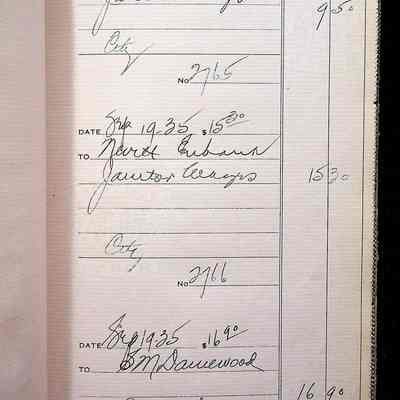 9 50
City
No 2765
DATE Sep 1935 $15 30
TO
Janitor Wages 15 30
City
No 2766
DATE Sep 1935 $16 90
TO B M Damewood
16 90